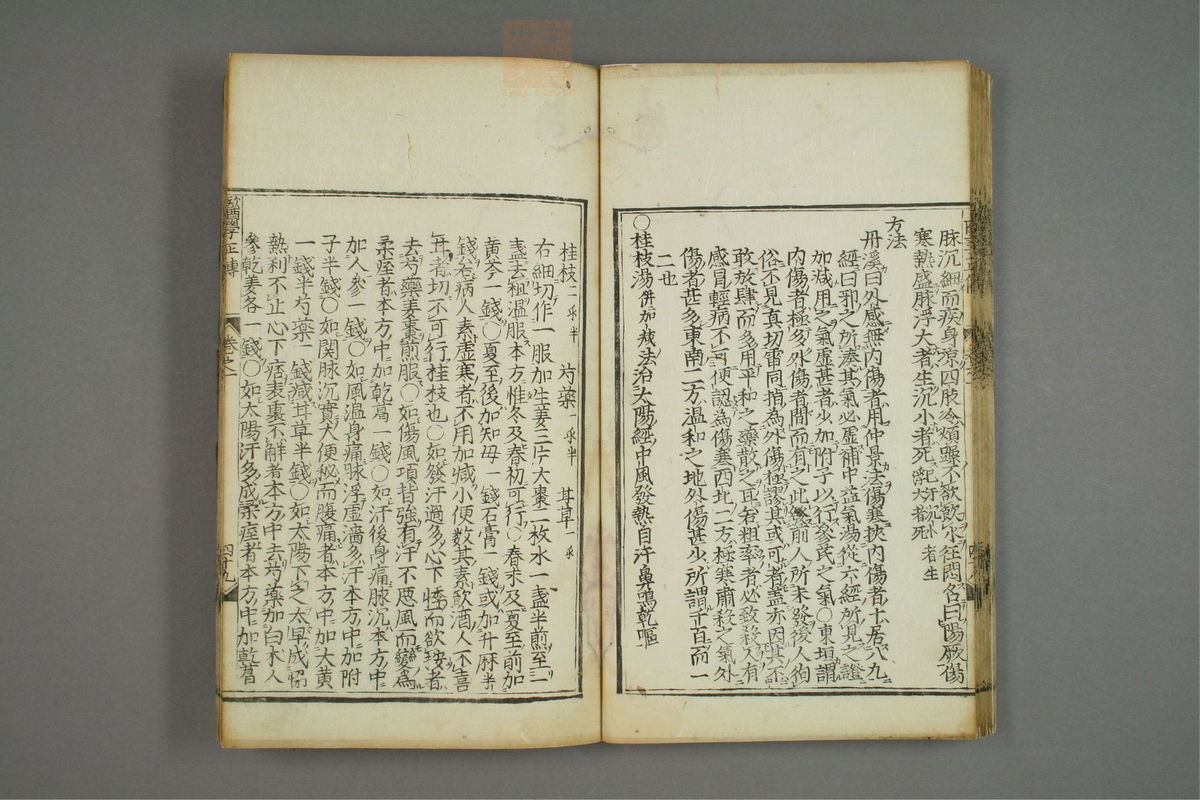 脉沉細而疾身凉四肢冷煩躁不欲飲水狂悶名曰陽厥傷
寒熱盛脉浮大者生沉小者死
方法
丹溪曰外感無内傷者用仲景法傷寒挾内傷者十居八九
經曰邪之所湊其氣必虚補中益氣湯從六經所見之證
加減用之氣虚甚者少加附子以行參芪之氣○東垣謂
内傷者極多外傷者間而有之此發前人所未發後人徇
俗不見真切雷同指為外傷極謬其或可者蓋亦因其不
敢放肆而多用平和之藥散之耳若粗率者必致殺人有
感冒輕病不可便認為傷寒西北二方極寒肅殺之氣外
傷者甚多東南二方温和之地外傷甚少所謂千百而一
二也
○桂枝湯併加减法治太陽經中風發熱自汗鼻鳴乾嘔
桂枝二戔半 芍藥一戔半 甘草一戔
右細切作一服加生姜三片大棗二枚水一盞半煎至一
盞去粗温服本方惟冬及春初可行○春末及夏至前加
黄芩一錢○夏至後加知母一錢石膏二錢或加升麻半
錢若病人素虚寒者不用加减小便数其素飲酒人不喜
甘者切不可行桂枝也○如發汗過多心下悸而欲按者
去芍藥姜棗煎服○如傷風項背強有汗不惡風而變為
柔痓者本方中加乾葛一錢○如汗後身痛脉沉本方中
加人參一錢○如風温身痛脉浮虚濇多汗本方中加附
子半錢○如関脉沉實大便秘而腹痛者本方中加大黄
一錢半芍藥一錢减甘草半錢○如太陽下之太早成恊
熱利不止心下痞表裏不解者本方中去芍藥加白术人
參乾姜各一錢○如太陽汗多成柔痓者本方中加乾葛
醫學正傳
卷之一
四十九